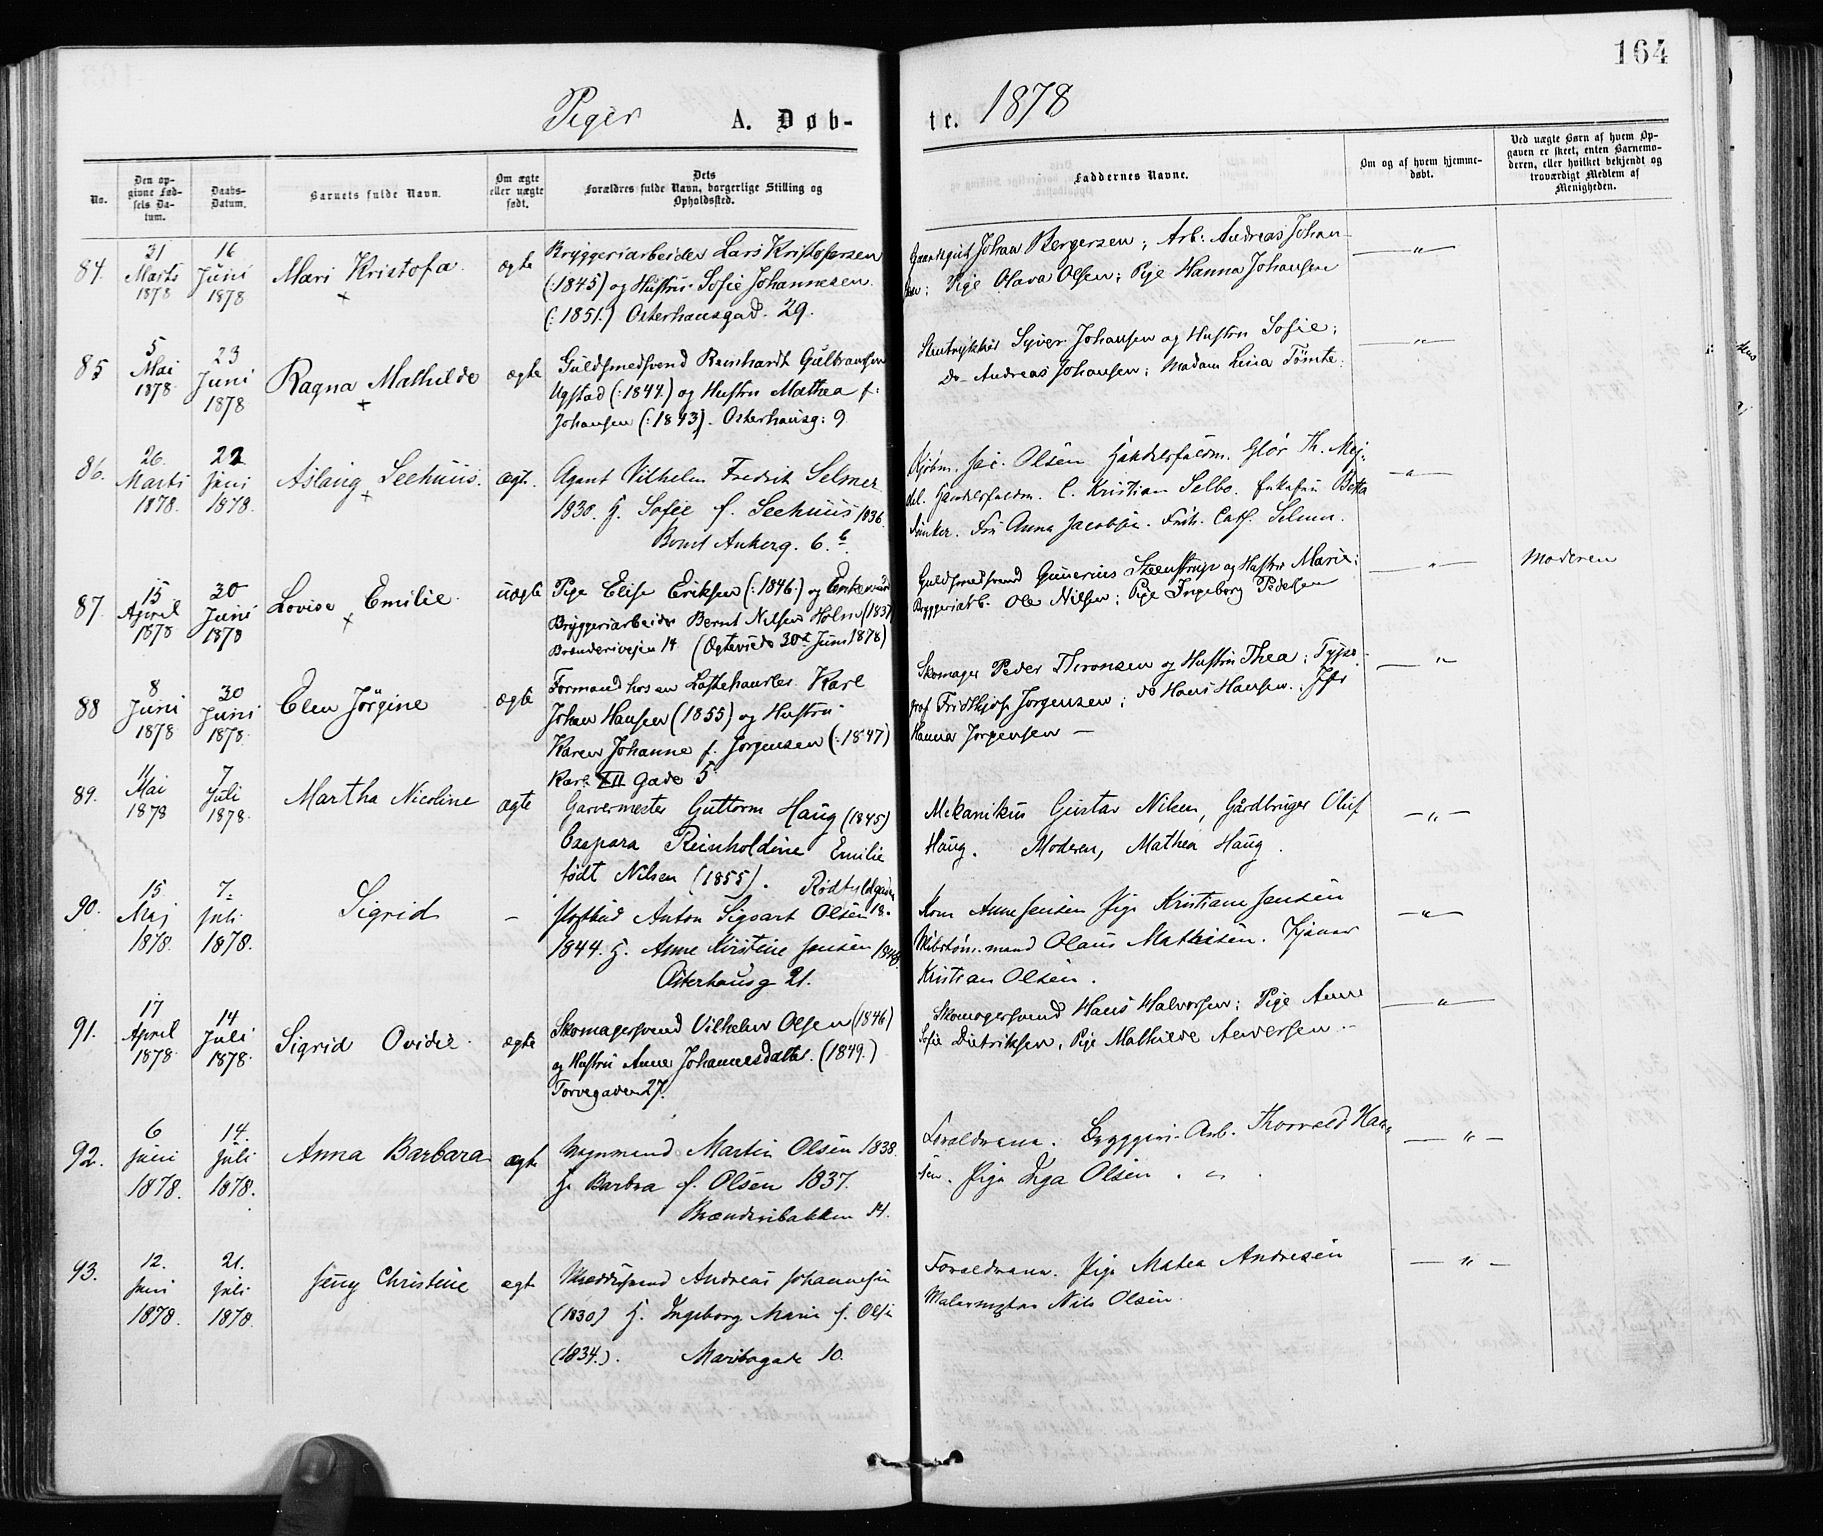 164
Piger A. Døb-
te. 1878
No.
Den op-
givne Fød-
sels Da-
tum.
Daabs-
Datum.
Barnets fulde Navn.
Om ægte
eller uægte
født.
Dets
Forældres fulde Navn, borgerlige Stilling og
Opholdssted.
Faddernes Navne.
Om og af hvem hjemme-
døbt.
Ved uægte Børn af hvem Op-
gaven er skeet, enten Barnemo-
deren, eller hvilket bekjendt og
troværdigt Medlem af
Menigheden.
84.
31
Marts
1878
16
Juni
1878
Mari Kristofa
+
ægte
Bryggeriarbeider Lars Kristofersen
(:1845) og Hustru Sofie Johannesen
(:1851.) Osterhausgad. 29.
Johan Bergersen; Arb: Andreas Johan-
sen; Pige Olava Olsen; Pige Hanna Johansen
— " —
85
5
Mai
1878
23
Juni
1878
Ragna Mathilde
+
ægte
Guldsmedsvend Reinhardt Gulbransen
Ugstad (:1844.) og Hustru Mathea f:
Johansen (:1843). Osterhausg: 9
Stentrykker Syver Johansen og Hustru Sofie;
Do Andreas Johansen; Madam Lina Tömte.
— " —
86.
26.
Marts
1878.
22
Juni
1878.
Aslaug Seehuus.
+
ægt.
Agent Vilhelm Fredrik Selmer
1830. H. Sofie f. Seehuus 1836.
Bernt Ankerg. 6.b
Jac. Olsen Handelsfuldm. Glör Th. Mej-
del. Handelsfuldm. C. Kristian Selbo. Enkefru Betta
Fru Anna Jacobsen. Frk. Cath. Selmer.
— " —
87.
15
April
1878
30
Juni
1878
Lovise Emilie.
+
uægte
Pige Elise Eriksen (:1846.) og Enkemand
Bryggeriarbeider Bernt Nilsen Holm (1837
Brænderivejen 14 (Ægteviede 30te Juni 1878)
Guldsmedsvend Gunerius Steenstrup og Hustru Marie;
Bryggeriarb. Ole Nilsen; Pige Ingeborg Pedersen
— " —
Moderen
88
8
Juni
1878
30
Juni
1878.
Elen Jörgine
ægte
Formand hos en Lastehandler Karl
Johan Hansen (1855) og Hustru
Karen Johanne f. Jorgensen (:1847)
Karl XII Gade 5
Skomager Peder Thronsen og Hustru Thea; Typo-
graf Fridthjof Jorgensen; do Hans Hansen. Jfr
Hanna Jorgensen —
— " —
89.
11
Mai
1878
7
Juli
1878.
Martha Nicoline
ægte
Garvermester Guttorm Haug (1845)
Caspara Reinholdine Emilie
født Nilsen (1855). Rødfyldgaden
18.
Mekanikus Gustav Nilsen, Gårdbruger Oluf
Haug. Moderen, Mathea Haug.
— " —
90.
15.
Maj
1878.
7.
Juli
1878.
Sigrid
—
Postbud Anton Sigvart Olsen
1844. H. Anne Kirstine Jensen 1848.
Osterhausg 21.
Kone Anne Jensen Pige Kristiane Jensen
mand Olaus Mathisen. Tjener
Kristian Olsen.
— " —
91.
17
April
1878
14
Juli
1878.
Sigrid Ovidie.
ægte
Skomagersvend Vilhelm Olsen (1846)
og Hustru Anne Johannesdatter. (1849.)
Torvegaden 27.
Skomagersvend Hans Halvorsen; Pige Anne
Sofie Dietriksen, Pige Mathilde Andersen —
— " —
92.
6
Juni
1878.
14.
Juli
1878.
Anna Barbara
ægte
Vognmand Martin Olsen 1838.
H. Barbra f. Olsen 1837.
Brænderibakken 14.
Foreldrene. Bryggeri-Arb. Thorvald Han-
sen. Pige Inga Olsen. "
— " —
93.
12.
Juni
1878.
21.
Juli
1878.
Jeny Christine
ægt
Skreddersvend Andreas Johannesen
(1830) H. Ingeborg Marie f. Olsen
(1834.). Maribogade 10.
Foreldrene. Pige Matea Andresen
Malermester Nils Olsen.
— " —